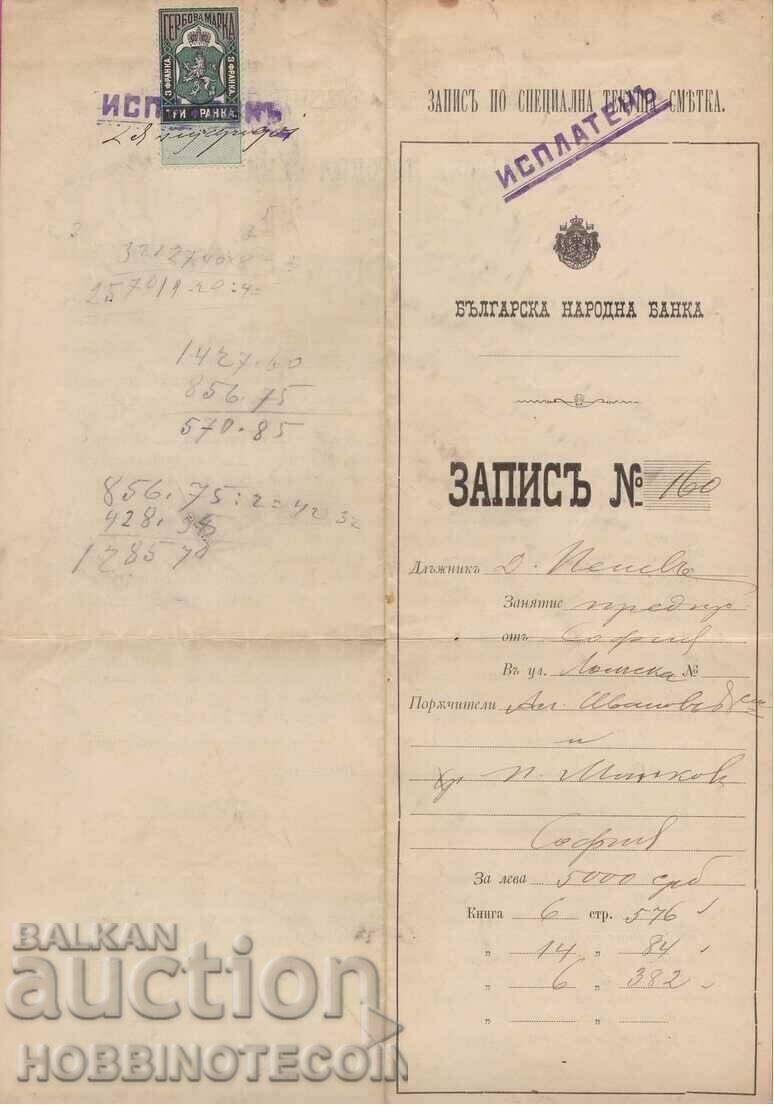 ГЕРБОВА МАРКА
3 ФРАНКА.
3 ФРАНКА.
ТРИ ФРАНКА.
ИСПЛАТЕНЪ
3212740.8
257019.20:4=
1427.60
856.75
570.85
856.75:2=42
428.
1285 70
ЗАПИСЪ ПО СПЕЦИАЛНА ТЕКУЩА СМѢТКА.
ИСПЛАТЕНЪ
БЪЛГАРСКА НАРОДНА БАНКА
ЗАПИСЪ № 160
Длъжникъ Д. Пешевъ
Занятие предпр
отъ София
Въ ул. Ломска №
Порѫчители Ал. Ивановъ
и
хр. П.
София
За лева 5000 срб
Книга 6 стр. 576
„ 14 „ 84
„ 6 „ 382
„ „
BALKAN
auction
HOBBINOTECOIN